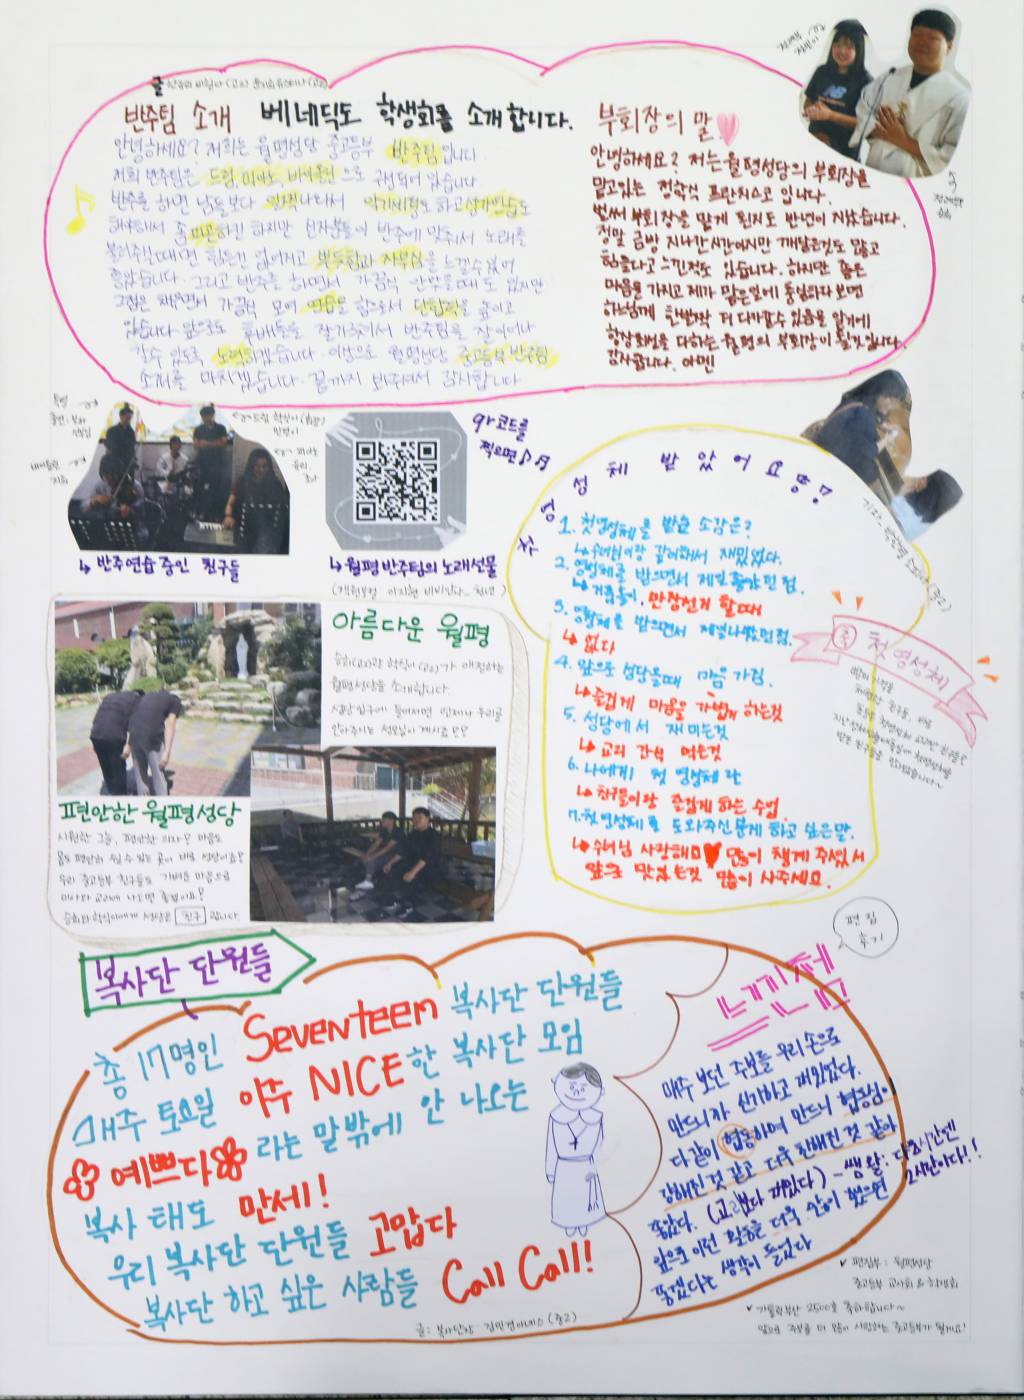 반주팀 소개 베네딕도 학생회를 소개합니다.
안녕하세요? 저희는 월평성당 중고등부 반주팀입니다
저희 반주팀은 드럼, 피아노, 바이올린으로 구성되어 있습니다
반주를 하면 남들보다 일찍 나와서 악기세팅도 하고 성가연습도
해야해서 좀 피곤하긴 하지만 신자분들이 반주에 맞춰서 노래를
불러주실때면 힘든건 없어지고 뿌듯함과 자부심을 느낄수있어
좋았습니다. 그리고 반주를 하면서 가끔씩 안맞을때도 있지만
그점은 채우면서 가끔씩 모여 연습을 함으로서 단합력을 높이고
있습니다 앞으로도 후배들을 잘가르쳐서 반주팀을 잘 이어나
갈수 있도록 노력하겠습니다. 이상으로 월평성당 중고등부 반주팀
소개를 마치겠습니다. 끝까지 봐주셔서 감사합니다
부회장의 말.
안녕하세요? 저는 월평성당의 부회장을
맡고있는 정학식 프란치스코 입니다.
벌써 부회장을 맡게 된지도 반년이 지났습니다.
정말 금방 지나간시간이지만 깨달은것도 많고
힘들다고 느낀적도 있습니다. 하지만 좋은
마음을 가지고 제가 맡은일에 충실하다 보면
하느님께 한발짝 더 다가갈수 있음을 알기에
항상 최선을 다하는 월평의 부회장이 될것입니다.
감사합니다. 아멘
↳ 반주연습중인 친구들
qr코드를
찍으면♪♬
↳ 월평반주팀의 노래선물
첫영성체 받았어요!
1. 첫영성체를 받은 소감은?
↳ 수녀님이랑 같이해서 재밌었다.
2. 영성체를 받으면서 제일 좋았던 점.
↳ 거룩들이, 만장전거 할때
3. 영성체를 받으면서 제일나빴던점.
↳ 없다
4. 앞으로 성당올때 마음 가짐.
↳ 즐겁게 마음을 가볍게 하는것
5. 성당에서 재미는것
↳ 교리 간식 먹는것
6. 나에게 첫 영성체란
↳ 친구들이랑 즐겁게 하는 수업
7. 첫영성체를 도와주신분께 하고 싶은말.
↳ 수녀님 사랑해요♥ 많이 챙겨주셔서
앞으로 맛있는것 많이 사주세요.
첫영성체
아름다운 월평
승희(고2)과 학식이(고2)가 애정하는
월평성당을 소개합니다.
성당입구에 들어서면 언제나 우리를
안아주시는 성모님이 계시고요
편안한 월평성당
시원한 그늘, 편안한 의자? 마음도
몸도 편안히 쉴 수 있는 곳이 바로 성당이죠?
우리 중고등부 친구들도 가벼운 마음으로
미사와 교리에 나오면 좋겠어요?
승희와 학식이에게 성당은 친구 입니다
복사단 단원들
총 17명인 Seventeen 복사단 단원들
매주 토요일 아주 NICE한 복사단 모임
예쁘다 라는 말밖에 안 나오는
복사 태도 만세!
우리 복사단 단원들 고맙다
복사단 하고 싶은 사람들 Call Call!
글: 복사단장 김민경아녜스 (중2)
편집
후기
느낀점
매주 보던 주보를 우리 손으로
만드니까 신기하고 재밌었다.
다같이 협동하며 만드니 협동심이
강해진 것 같고 더욱 친해진 것 같아
좋았다. (교리보다 재밌다) ~ 쌤 왈: 다음시간엔
2시간이다!!
앞으로 이런 활동을 더욱 많이 했으면
좋겠다는 생각이 들었다
✔ 편집부: 월평성당
중고등부 교사회 & 학생회
✔ 가톨릭부산 2500호 축하합니다~
앞으로 주보를 더 많이 사랑하는 중고등부가 될게요!